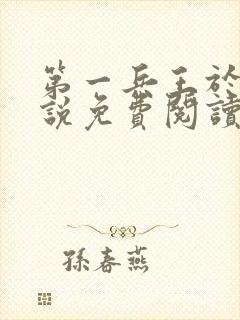 第一兵王於
說免費閱讀
孫春燕